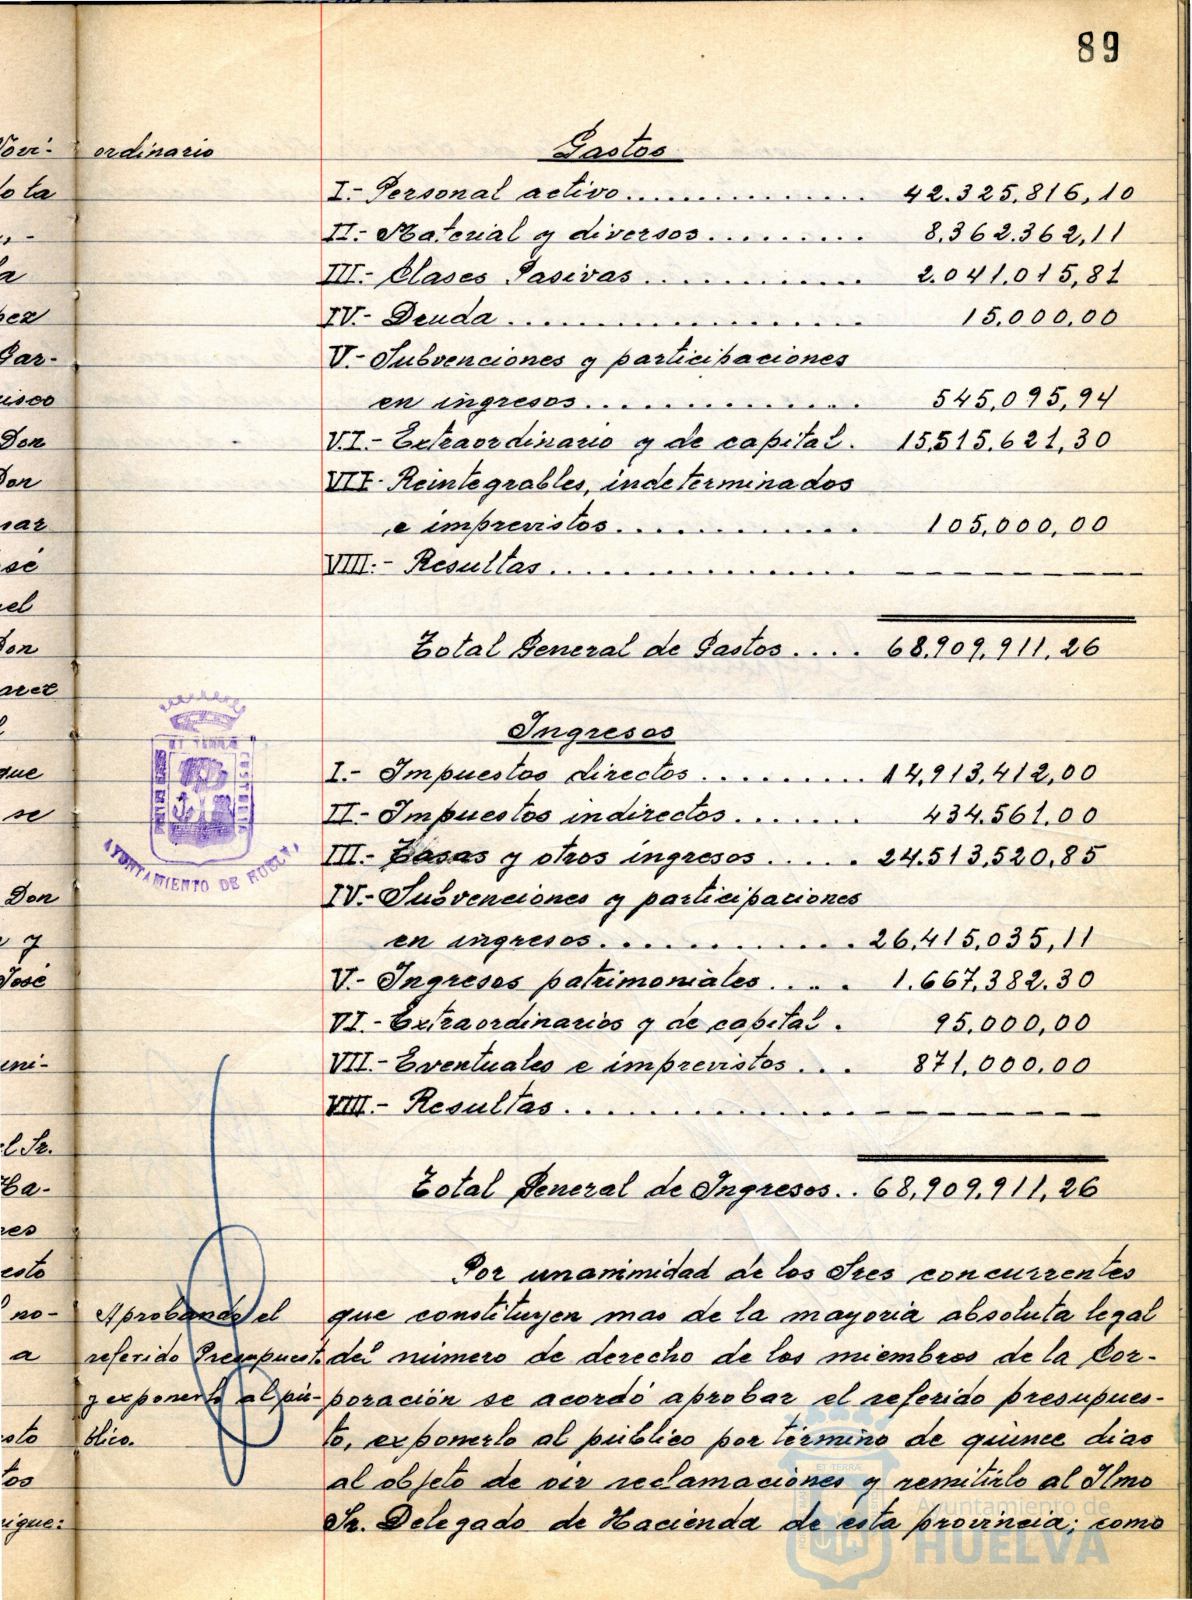 89
ordinario
Gastos
I.- Personal activo................ 42.325,816,10
II.- Material y diversos.......... 8.362.362,11
III.- Clases Pasivas............. 2.041.015,81
IV.- Deuda..................... 15.000,00
V.- Subvenciones y participaciones
en ingresos................ 545,095,94
VI.- Extraordinario y de capital. 15,515.621,30
VII- Reintegrables, indeterminados
e imprevistos............. 105,000,00
VIII.- Resultas................. — — — — — — —
Total General de Gastos.... 68,909,911,26
Ingresos
I.- Impuestos directos......... 14,913,412,00
II.- Impuestos indirectos....... 434.561,00
III.- Tasas y otros ingresos..... 24.513,520,85
IV.- Subvenciones y participaciones
en ingresos............. 26,415,035,11
V.- Ingresos patrimoniales..... 1.667,382.30
VI.- Extraordinarios y de capital. 95.000,00
VII.- Eventuales e imprevistos... 871,000,00
VIII.- Resultas............... — — — — — — —
Total General de Ingresos.. 68,909,911,26
Por unanimidad de los Sres concurrentes
que constituyen mas de la mayoria absoluta legal
del número de derecho de los miembros de la Cor-
poración se acordó aprobar el referido presupues-
to, exponerlo al público por término de quince dias
al objeto de oir reclamaciones y remitirlo al Ilmo
Sr. Delegado de Hacienda de esta provincia; como
Aprobando el
referido Presupuesto
y exponerlo al pú-
blico.
AYUNTAMIENTO DE HUELVA
Ayuntamiento de
HUELVA